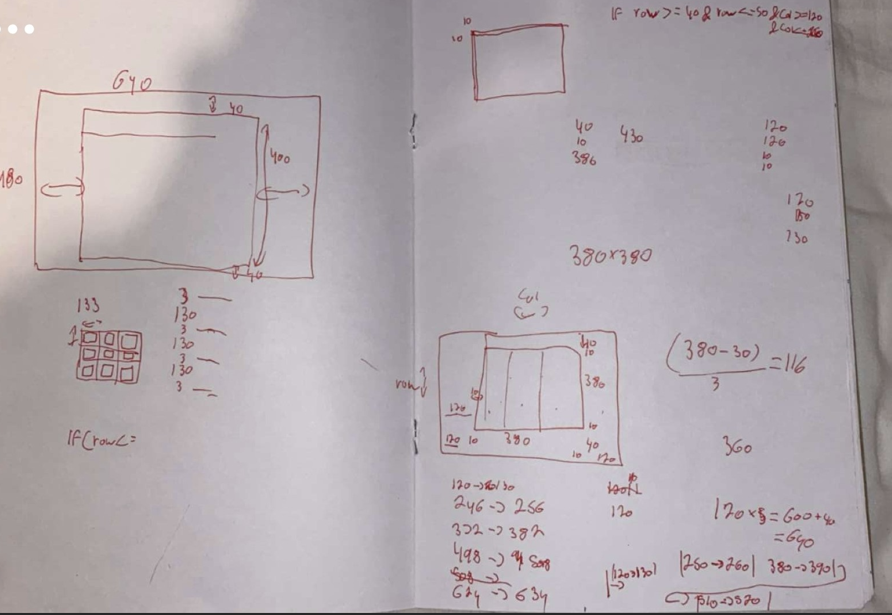 640
40
400
480
40
133
3
130
3
130
3
130
3
IF(row<=
10
10
IF row>=40 & row<=50 & Col>=120
40
10
386
430
120
120
10
10
120
130
380x380
Col
row
40
10
380
10
120
120 10 380
40
10 120
(380-30)
3
=116
360
246 -> 256
372 -> 382
498 ->
624 -> 634
120
120x5=600+40
=640
|250->260| 380->390|